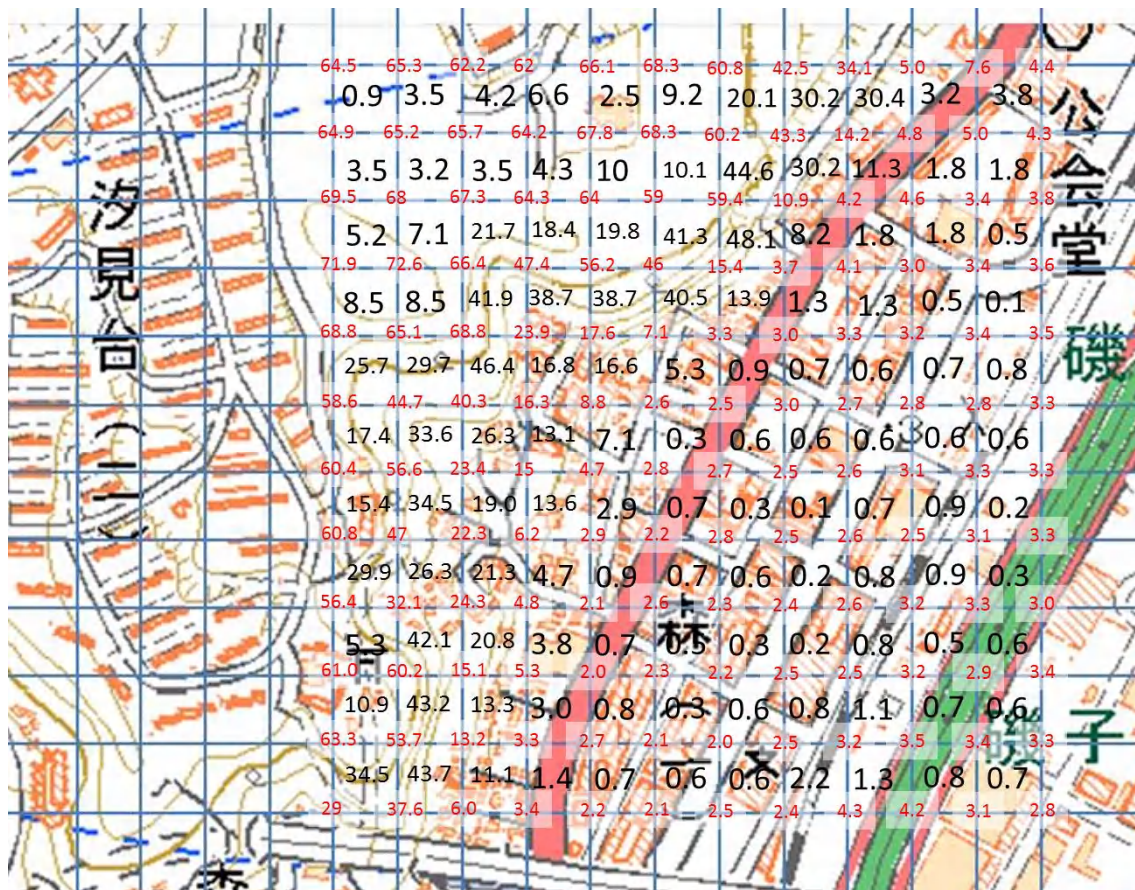 64.5 65.3 62.2 62 66.1 68.3 60.8 42.5 34.1 5.0 7.6 4.4
0.9 3.5 4.2 6.6 2.5 9.2 20.1 30.2 30.4 3.2 3.8
64.9 65.2 65.7 64.2 67.8 68.3 60.2 43.3 14.2 4.8 5.0 4.3
3.5 3.2 3.5 4.3 10 10.1 44.6 30.2 11.3 1.8 1.8
69.5 68 67.3 64.3 64 59 59.4 10.9 4.2 4.6 3.4 3.8
5.2 7.1 21.7 18.4 19.8 41.3 48.1 8.2 1.8 1.8 0.5
71.9 72.6 66.4 47.4 56.2 46 15.4 3.7 4.1 3.0 3.4 3.6
8.5 8.5 41.9 38.7 38.7 40.5 13.9 1.3 1.3 0.5 0.1
68.8 65.1 68.8 23.9 17.6 7.1 3.3 3.0 3.3 3.2 3.4 3.5
25.7 29.7 46.4 16.8 16.6 5.3 0.9 0.7 0.6 0.7 0.8
58.6 44.7 40.3 16.3 8.8 2.6 2.5 3.0 2.7 2.8 2.8 3.3
17.4 33.6 26.3 13.1 7.1 0.3 0.6 0.6 0.6 0.6 0.6
60.4 56.6 23.4 15 4.7 2.8 2.7 2.5 2.6 3.1 3.3 3.3
15.4 34.5 19.0 13.6 2.9 0.7 0.3 0.1 0.7 0.9 0.2
60.8 47 22.3 6.2 2.9 2.2 2.8 2.5 2.6 2.5 3.1 3.3
29.9 26.3 21.3 4.7 0.9 0.7 0.6 0.2 0.8 0.9 0.3
56.4 32.1 24.3 4.8 2.1 2.6 2.3 2.4 2.6 3.2 3.3 3.0
5.3 42.1 20.8 3.8 0.7 0.5 0.3 0.2 0.8 0.5 0.6
61.0 60.2 15.1 5.3 2.0 2.3 2.2 2.5 2.6 3.2 2.9 3.4
10.9 43.2 13.3 3.0 0.8 0.3 0.6 0.8 1.1 0.7 0.6
63.3 53.7 13.2 3.3 2.7 2.1 2.0 2.5 3.2 3.5 3.4 3.3
34.5 43.7 11.1 1.4 0.7 0.6 0.6 2.2 1.3 0.8 0.7
29 37.6 6.0 3.4 2.2 2.1 2.5 2.4 4.3 4.2 3.1 2.8
汐見台(二)
公会堂
磯
磯子
森